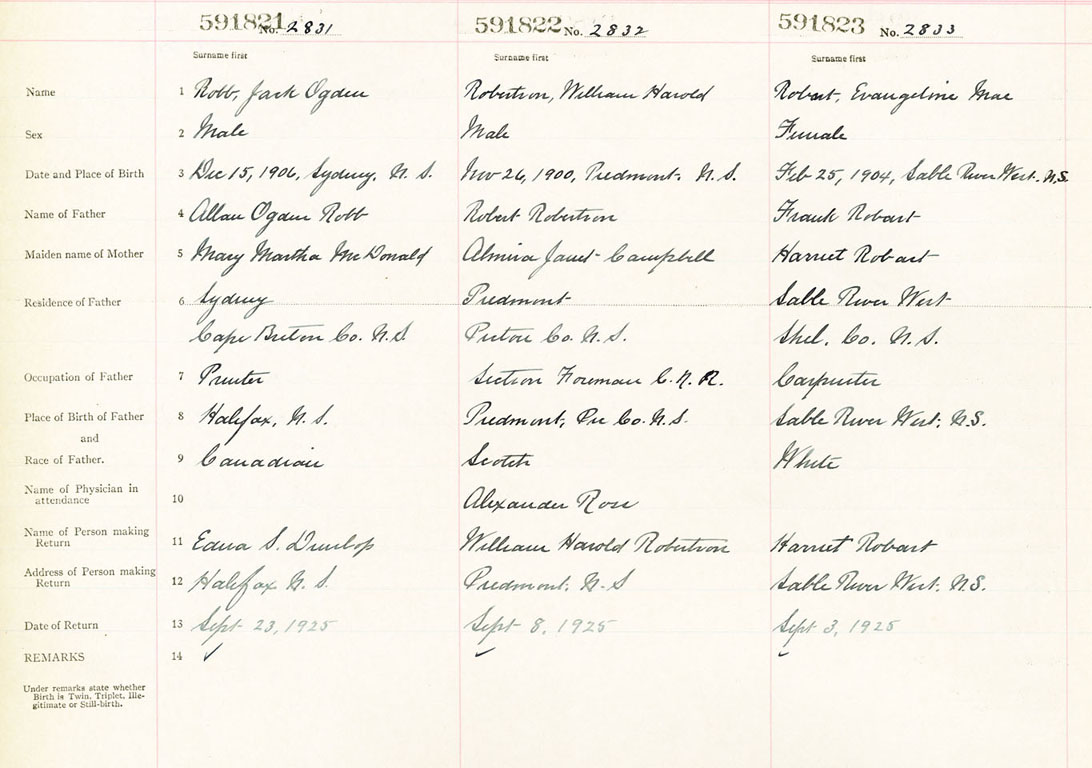 591821 No. 2831 591822 No. 2832 591823 No. 2833
Surname first Surname first Surname first
Name 1 Robb, Jack Ogden Robertson, William Harold Robart, Evangeline Mae
Sex 2 Male Male Female
Date and Place of Birth 3 Dec 15, 1906, Sydney, N. S. Nov 26, 1900, Piedmont, N. S. Feb 25, 1904, Sable River West. N.S.
Name of Father 4 Allan Ogden Robb Robert Robertson Frank Robart
Maiden name of Mother 5 Mary Martha McDonald Almira Janet Campbell Harriet Robart
Residence of Father 6 Sydney Piedmont Sable River West
Cape Breton Co. N.S. Pictou Co. N.S. Shel. Co. N.S.
Occupation of Father 7 Printer Section Foreman C.N.R. Carpenter
Place of Birth of Father 8 Halifax, N. S. Piedmont, Pic Co. N.S. Sable River West, N.S.
and
Race of Father. 9 Canadian Scotch White
Name of Physician in
attendance 10 Alexander Ross
Name of Person making
Return 11 Edna S. Dunlop William Harold Robertson Harriet Robart
Address of Person making
Return 12 Halifax N. S. Piedmont, N. S Sable River West. N.S.
Date of Return 13 Sept 23, 1925 Sept 8, 1925 Sept 3, 1925
REMARKS 14 ✓ ✓ ✓
Under remarks state whether
Birth is Twin, Triplet, Ille-
gitimate or Still-birth.